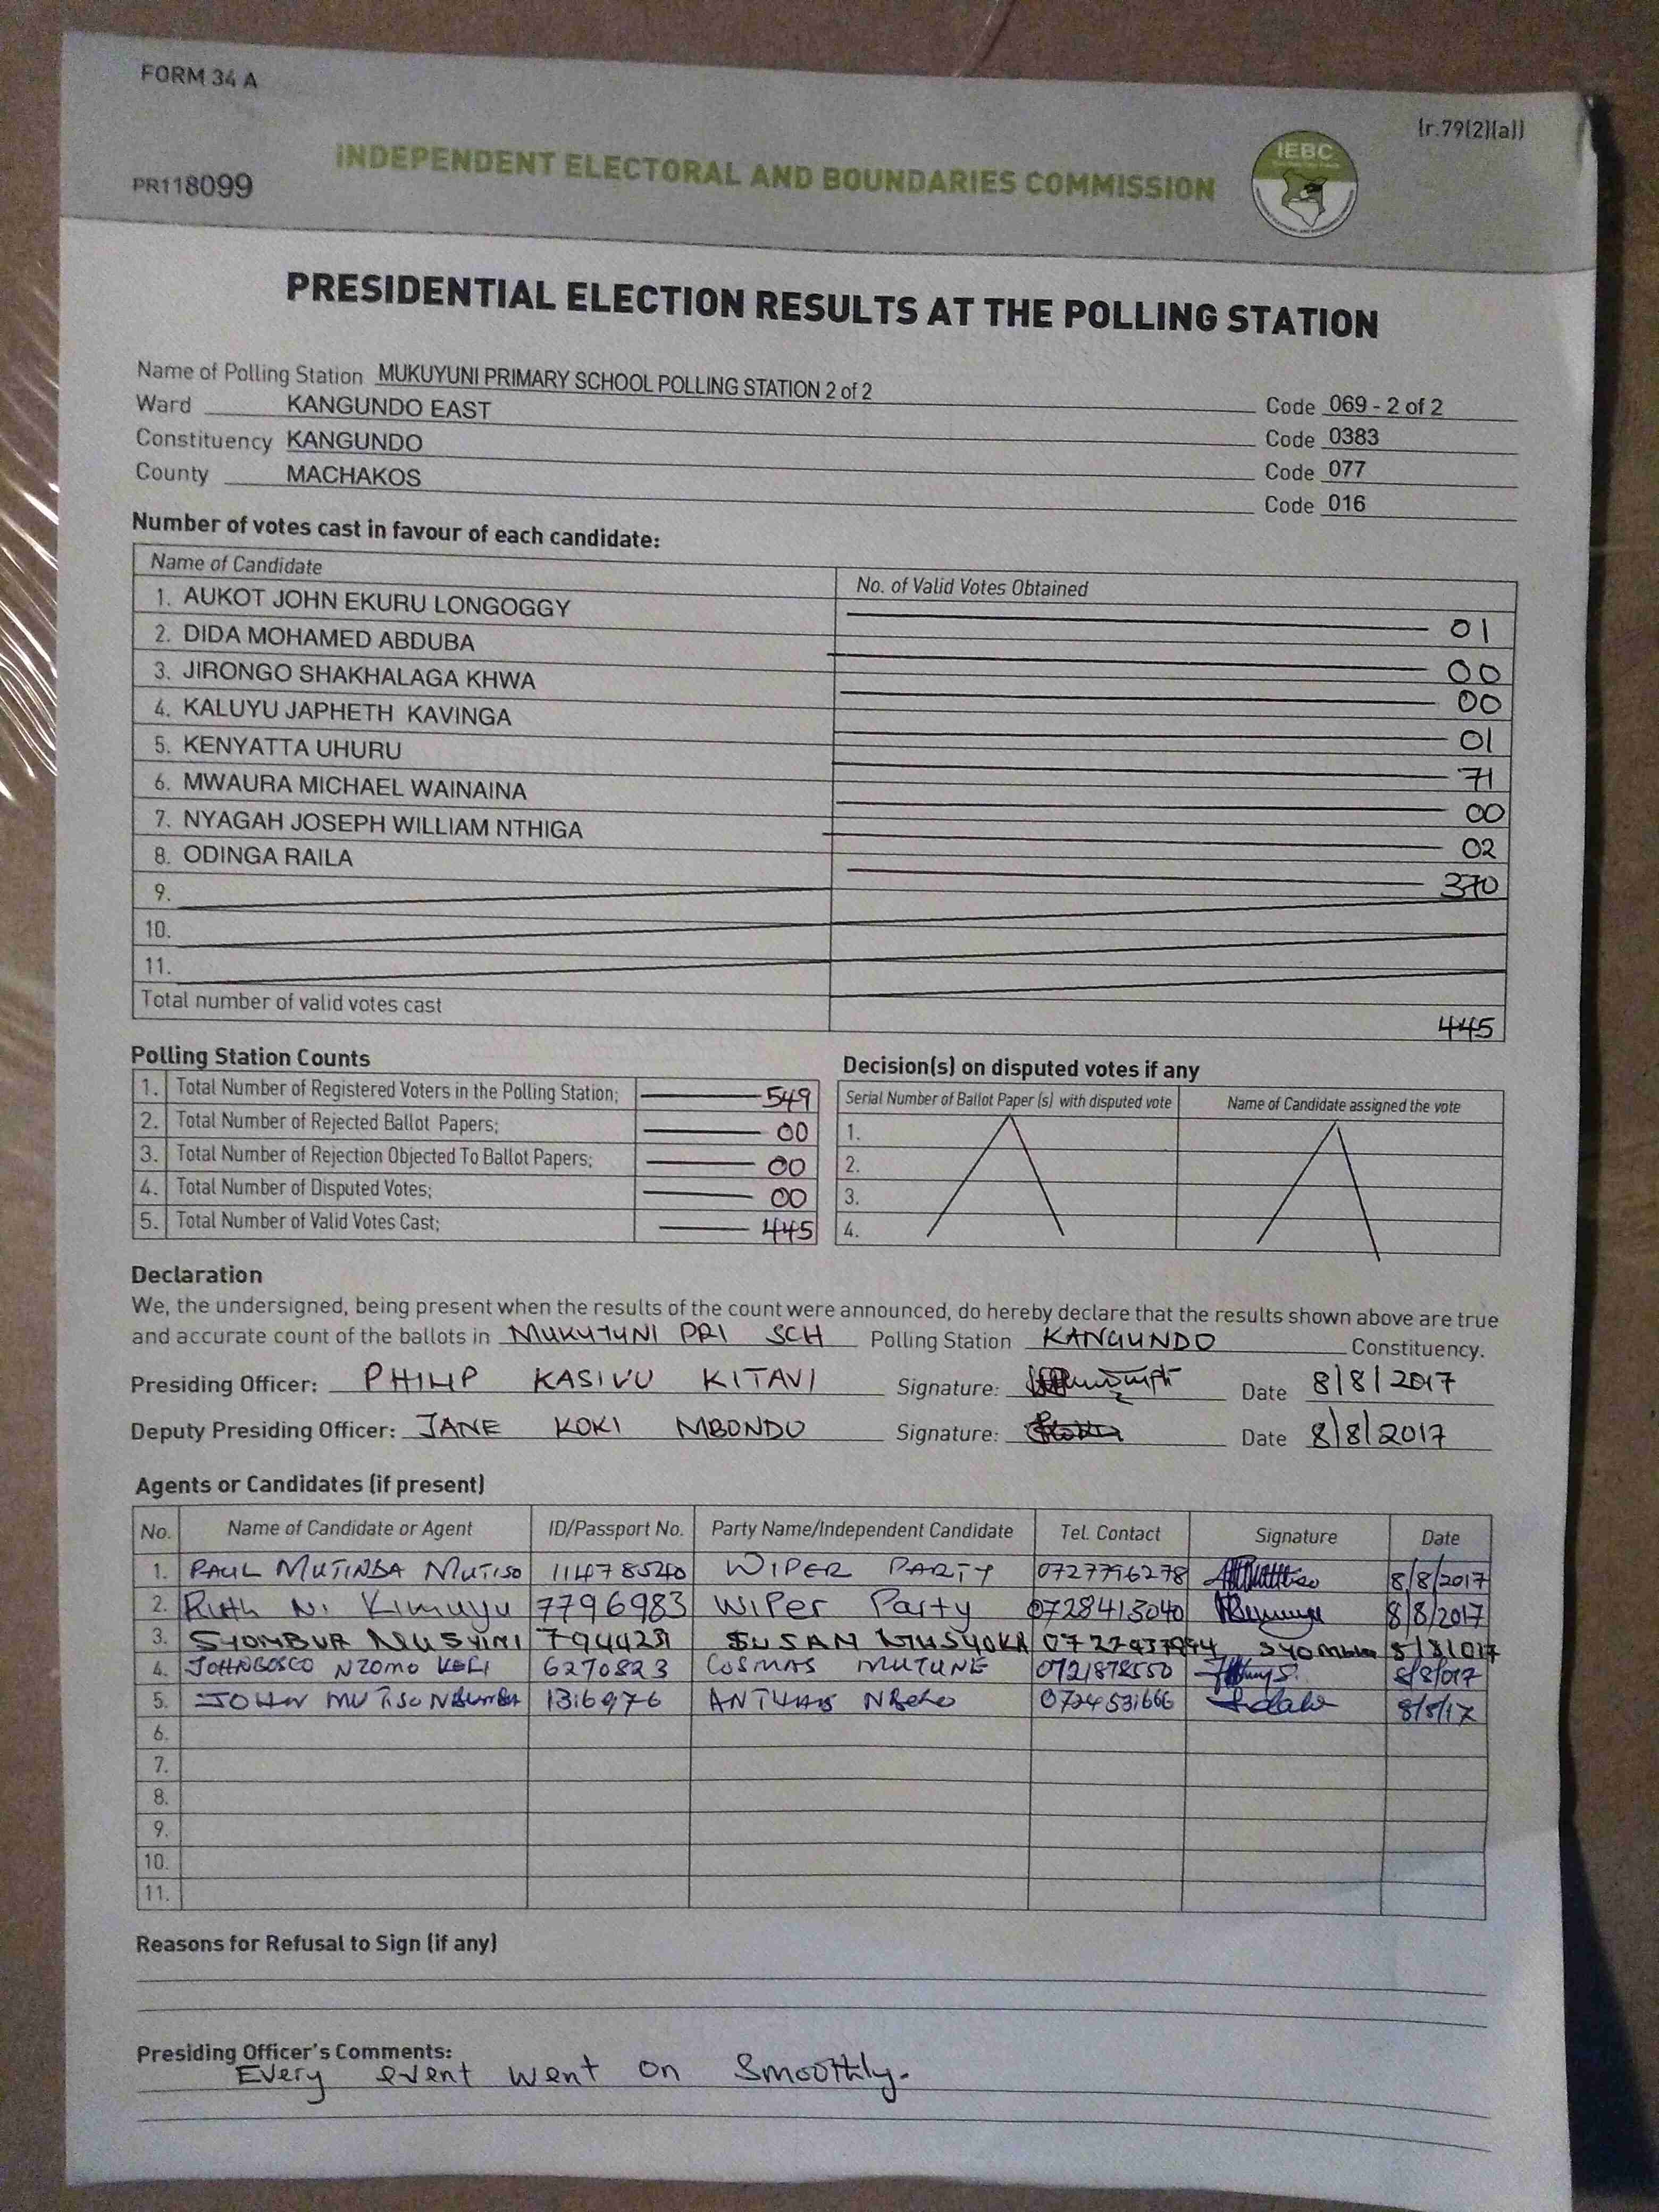 FORM 34 A
(r.79(2)(a))
PR118099
INDEPENDENT ELECTORAL AND BOUNDARIES COMMISSION
IEBC
PRESIDENTIAL ELECTION RESULTS AT THE POLLING STATION
Name of Polling Station MUKUYUNI PRIMARY SCHOOL POLLING STATION 2 of 2 Code 069 - 2 of 2
Ward KANGUNDO EAST Code 0383
Constituency KANGUNDO Code 077
County MACHAKOS Code 016
Number of votes cast in favour of each candidate:
Name of Candidate No. of Valid Votes Obtained
1. AUKOT JOHN EKURU LONGOGGY 01
2. DIDA MOHAMED ABDUBA 00
3. JIRONGO SHAKHALAGA KHWA 00
4. KALUYU JAPHETH KAVINGA 01
5. KENYATTA UHURU 71
6. MWAURA MICHAEL WAINAINA 00
7. NYAGAH JOSEPH WILLIAM NTHIGA 02
8. ODINGA RAILA 370
9.
10.
11.
Total number of valid votes cast 445
Polling Station Counts
1. Total Number of Registered Voters in the Polling Station; 549
2. Total Number of Rejected Ballot Papers; 00
3. Total Number of Rejection Objected To Ballot Papers; 00
4. Total Number of Disputed Votes; 00
5. Total Number of Valid Votes Cast; 445
Decision(s) on disputed votes if any
Serial Number of Ballot Paper (s) with disputed vote Name of Candidate assigned the vote
1.
2.
3.
4.
Declaration
We, the undersigned, being present when the results of the count were announced, do hereby declare that the results shown above are true
and accurate count of the ballots in MUKUYUNI PRI SCH Polling Station KANGUNDO Constituency.
Presiding Officer: PHILIP KASIVU KITAVI Signature: Date 8/8/2017
Deputy Presiding Officer: JANE KOKI MBONDO Signature: Date 8/8/2017
Agents or Candidates (if present)
No. Name of Candidate or Agent ID/Passport No. Party Name/Independent Candidate Tel. Contact Signature Date
1. PAUL MUTINDA MUTISO 11478520 WIPER PARTY 0727796278 8/8/2017
2. Ruth N. Kimuyu 7796983 WIPer Party 0728413040 8/8/2017
3. SYOMBUA MUSYIMI SUSAN MUSYOKA
4. JOHNBOSCO NZOMO 6270823 COSMAS MUTUNE 0721878550 8/8/017
5. JOHN MUTISO 1316976 0724531666 8/8/17
6.
7.
8.
9.
10.
11.
Reasons for Refusal to Sign (if any)
Presiding Officer's Comments:
Every event went on Smoothly.